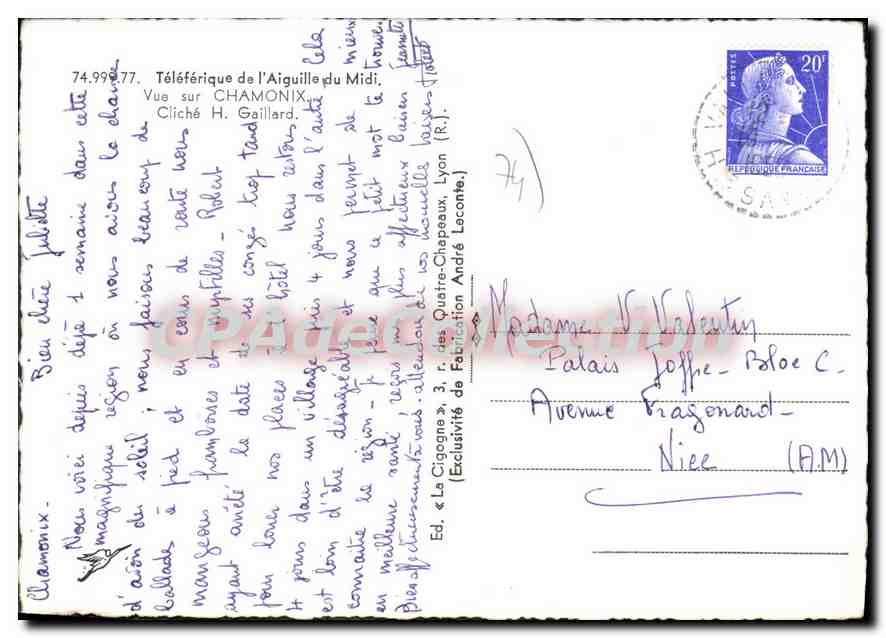 74.999.77. Téléférique de l'Aiguille du Midi.
Vue sur CHAMONIX.
Cliché H. Gaillard.
Chamonix.
Bien chère Juliette
Nous voici depuis déjà 1 semaine dans cette
magnifique région où nous avions la chance
d'avoir du soleil ; nous faisons beaucoup de
ballades à pied et en cours de route nous
mangeons framboises et myrtilles - Robert
ayant arrêté la date de ses congés trop tard
pour louer nos places à l'hôtel nous restons
4 jours dans un village puis 4 jours dans l'autre, cela
est loin d'être désagréable et nous permet de mieux
connaitre la région - je pense que ce petit mot te trouvera
en meilleure santé, reçois mes plus affectueux baisers Jeannette
Bien affectueusement à vous. attendons de vos nouvelles baisers Robert
Ed. « La Cigogne », 3, r. des Quatre-Chapeaux, Lyon (R.).
(Exclusivité de Fabrication André Leconte.)
74
POSTES
20F
REPUBLIQUE FRANÇAISE
Madame V Valentin
Palais Joffre - Bloc C.
Avenue Fragonard -
Nice (A.M)
CPAdeCollection